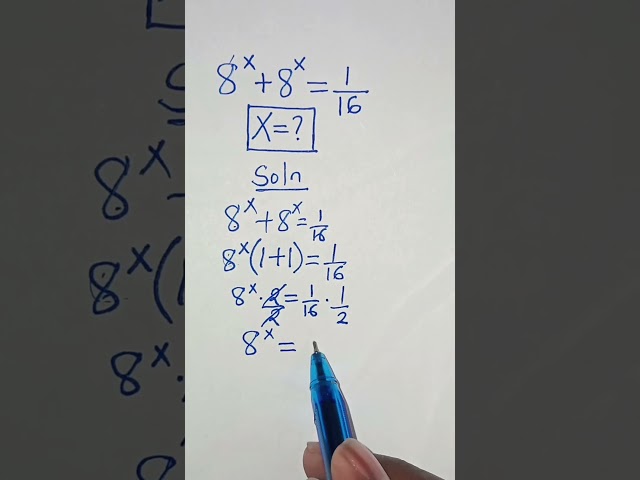 8^x + 8^x = 1/16
X = ?
Soln
8^x + 8^x = 1/16
8^x (1 + 1) = 1/16
8^x · 2/2 = 1/16 · 1/2
8^x =